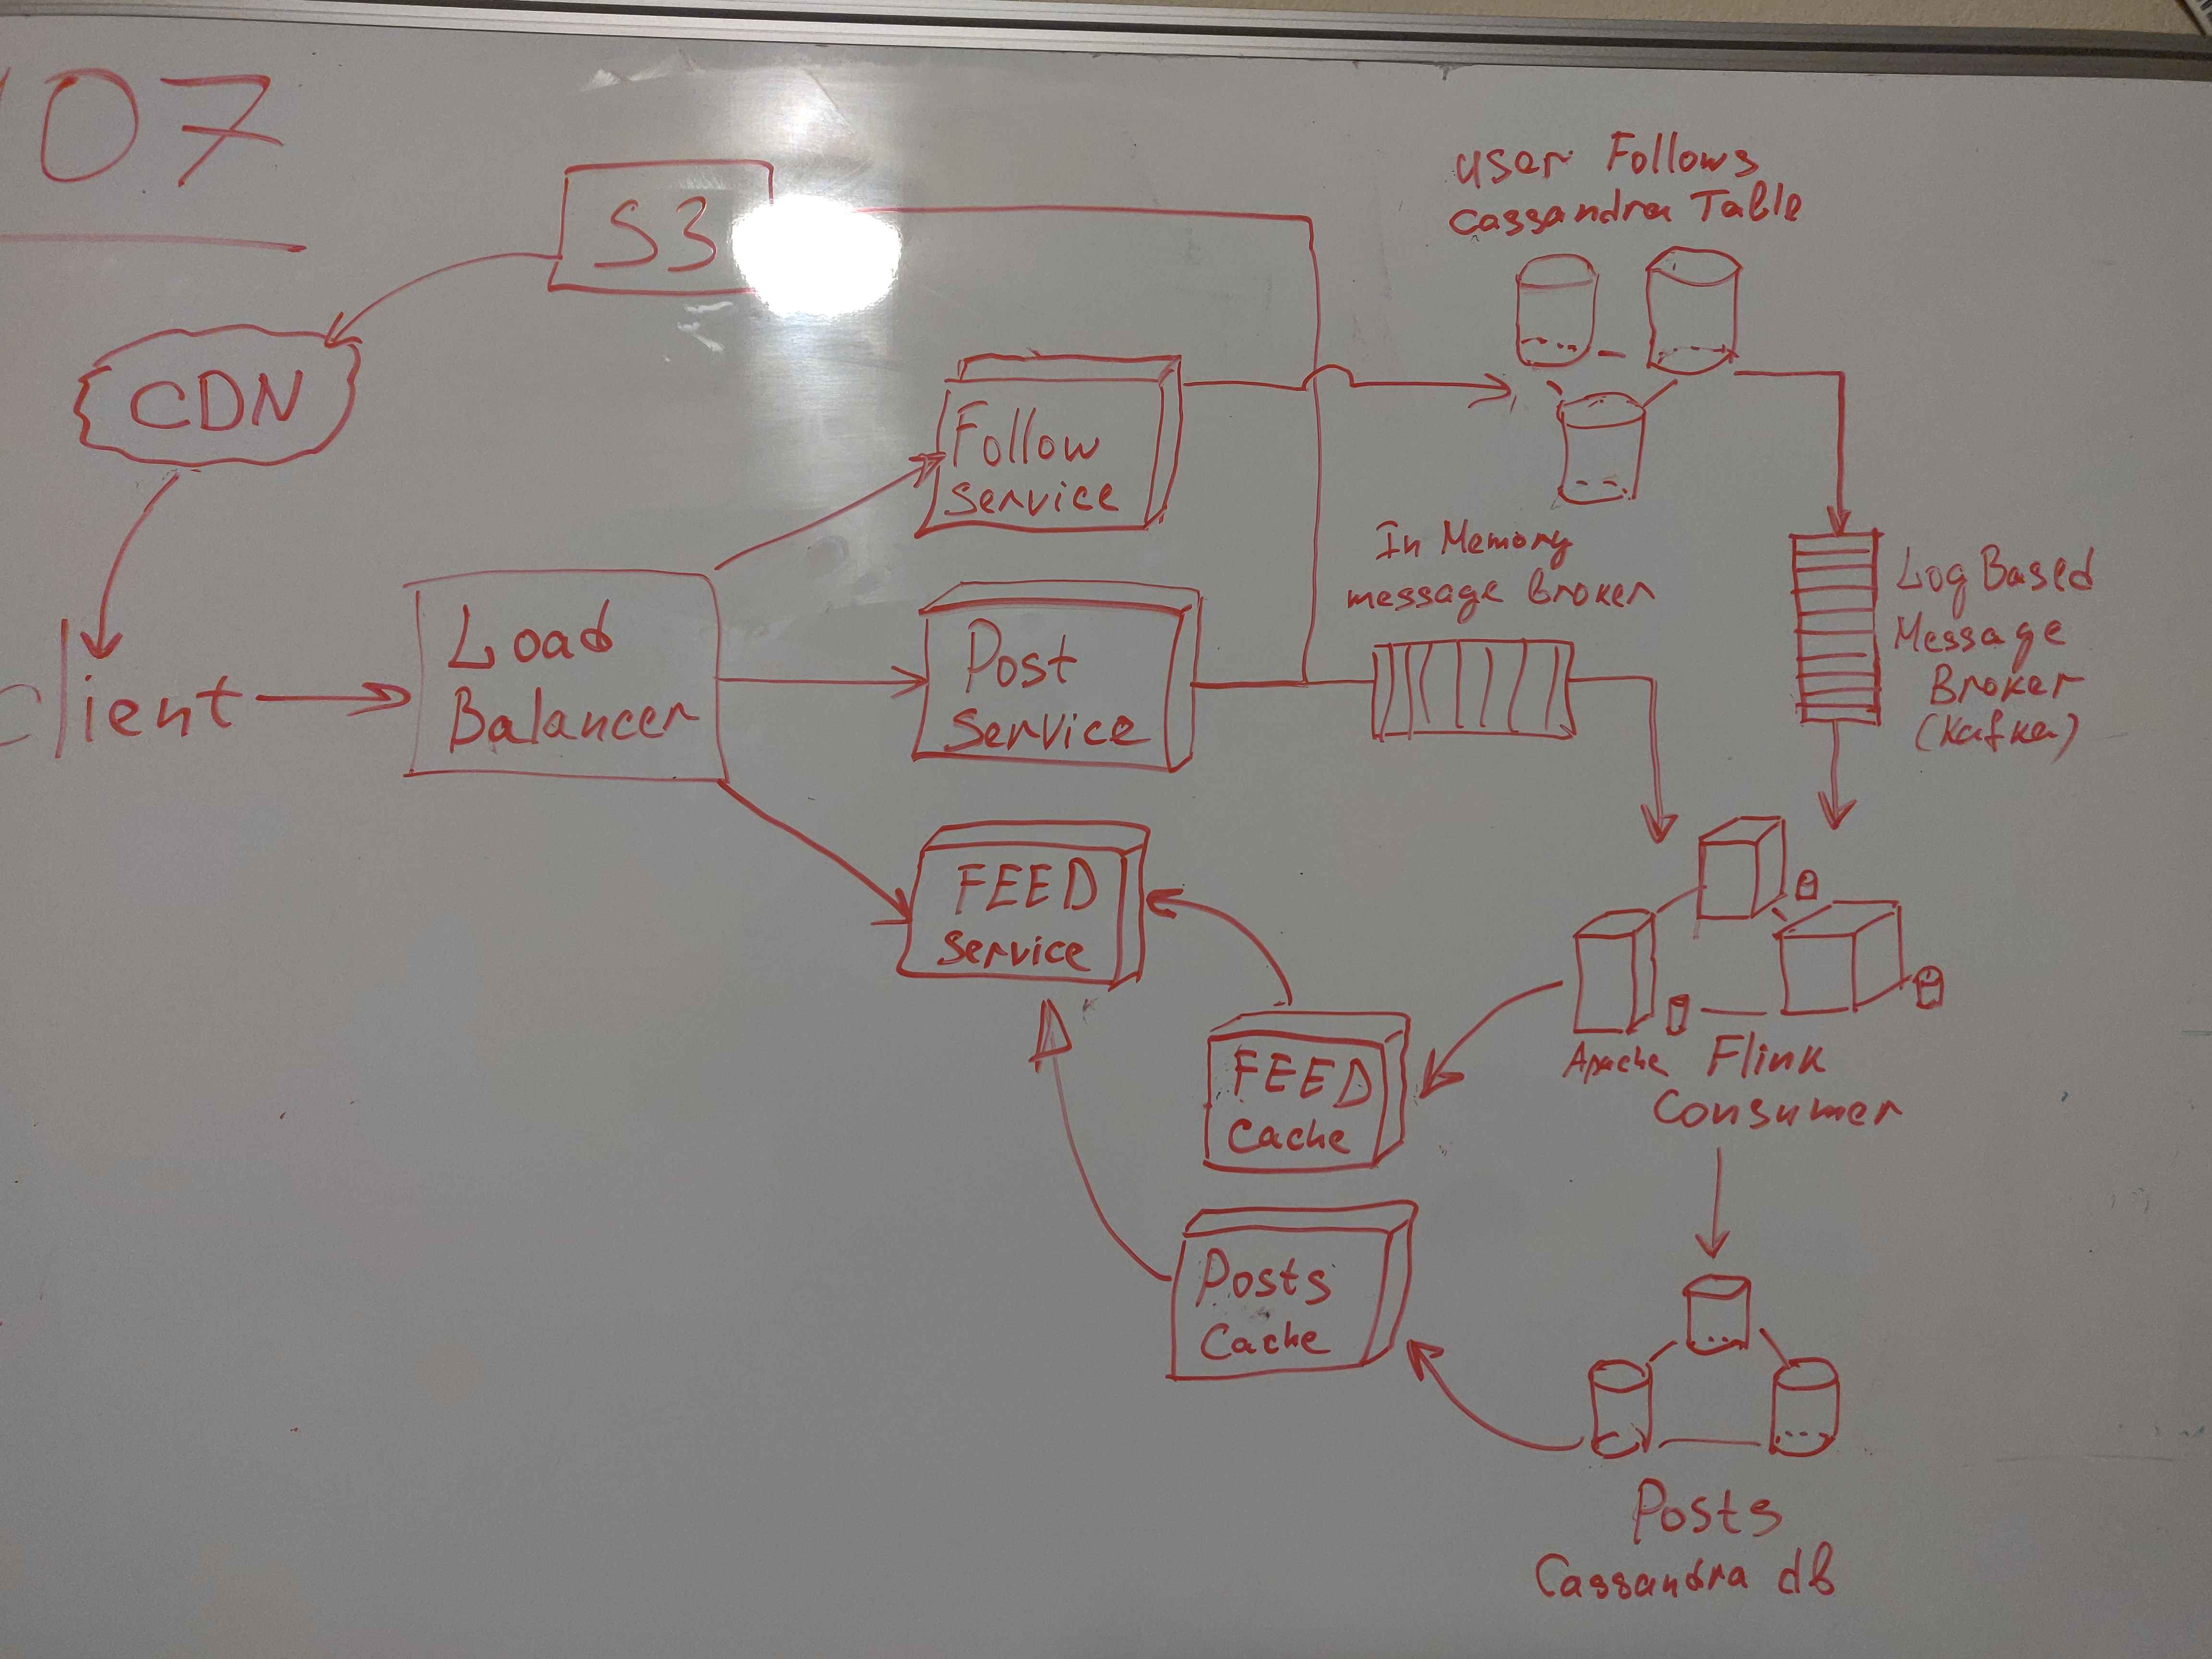 107
S3
User Follows
Cassandra Table
CDN
Follow
Service
In Memory
message Broker
Log Based
Message
Broker
(Kafka)
Client
Load
Balancer
Post
Service
FEED
Service
Apache Flink
Consumer
FEED
Cache
Posts
Cache
Posts
Cassandra db